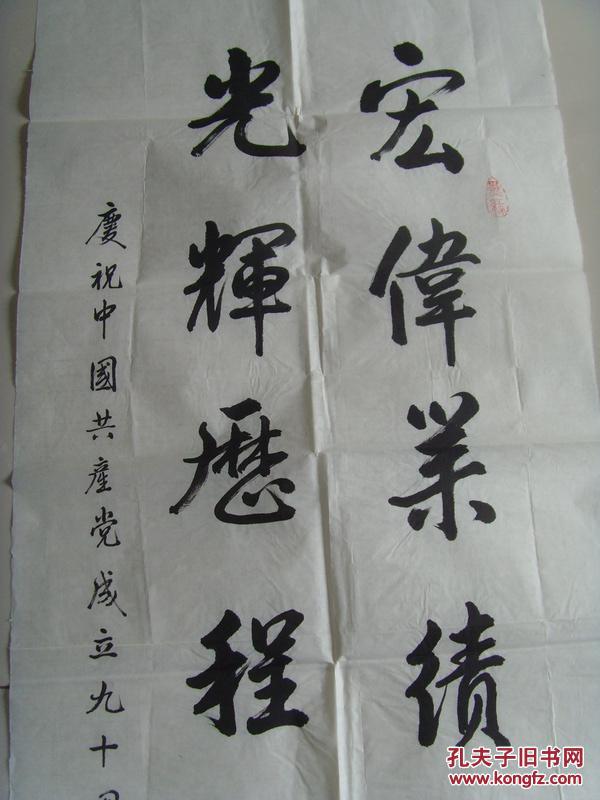 宏偉業績
光輝歷程
慶祝中國共產党成立九十
孔夫子旧书网
www.kongfz.com